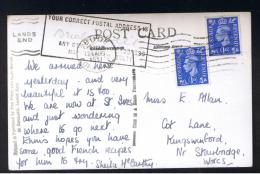 LANDS END
YOUR CORRECT POSTAL ADDRESS
POST CARD
ANY
We arrived here
yesterday - and very
beautiful it is too
We are now at St. Ives
and just wondering
where to go next
Ennis hopes you have
some good French recipes
for him to try - Sheila McCarthy
Miss E. Allan
Cot Lane,
Kingswinford,
Nr Stourbridge,
WORCS